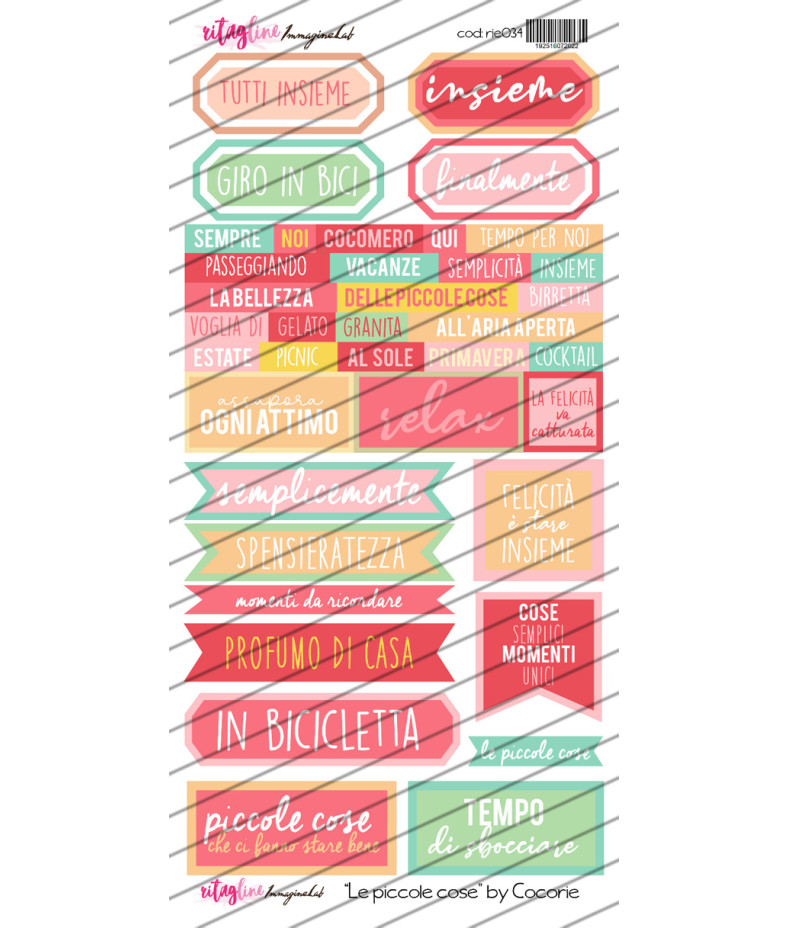 ritagline ImmagineLab cod: rje034
192516072022
TUTTI INSIEME
insieme
GIRO IN BICI
finalmente
SEMPRE NOI COCOMERO QUI TEMPO PER NOI
PASSEGGIANDO VACANZE SEMPLICITÀ INSIEME
LA BELLEZZA DELLE PICCOLE COSE BIRRETTA
VOGLIA DI GELATO GRANITA ALL'ARIA APERTA
ESTATE PICNIC AL SOLE PRIMAVERA COCKTAIL
assapora
OGNI ATTIMO
relax
LA FELICITÀ
va
catturata
semplicemente
SPENSIERATEZZA
momenti da ricordare
PROFUMO DI CASA
IN BICICLETTA
FELICITÀ
è stare
INSIEME
COSE
SEMPLICI
MOMENTI
UNICI
le piccole cose
piccole cose
che ci fanno stare bene
TEMPO
di sbocciare
ritagline ImmagineLab "Le piccole cose" by Cocorie